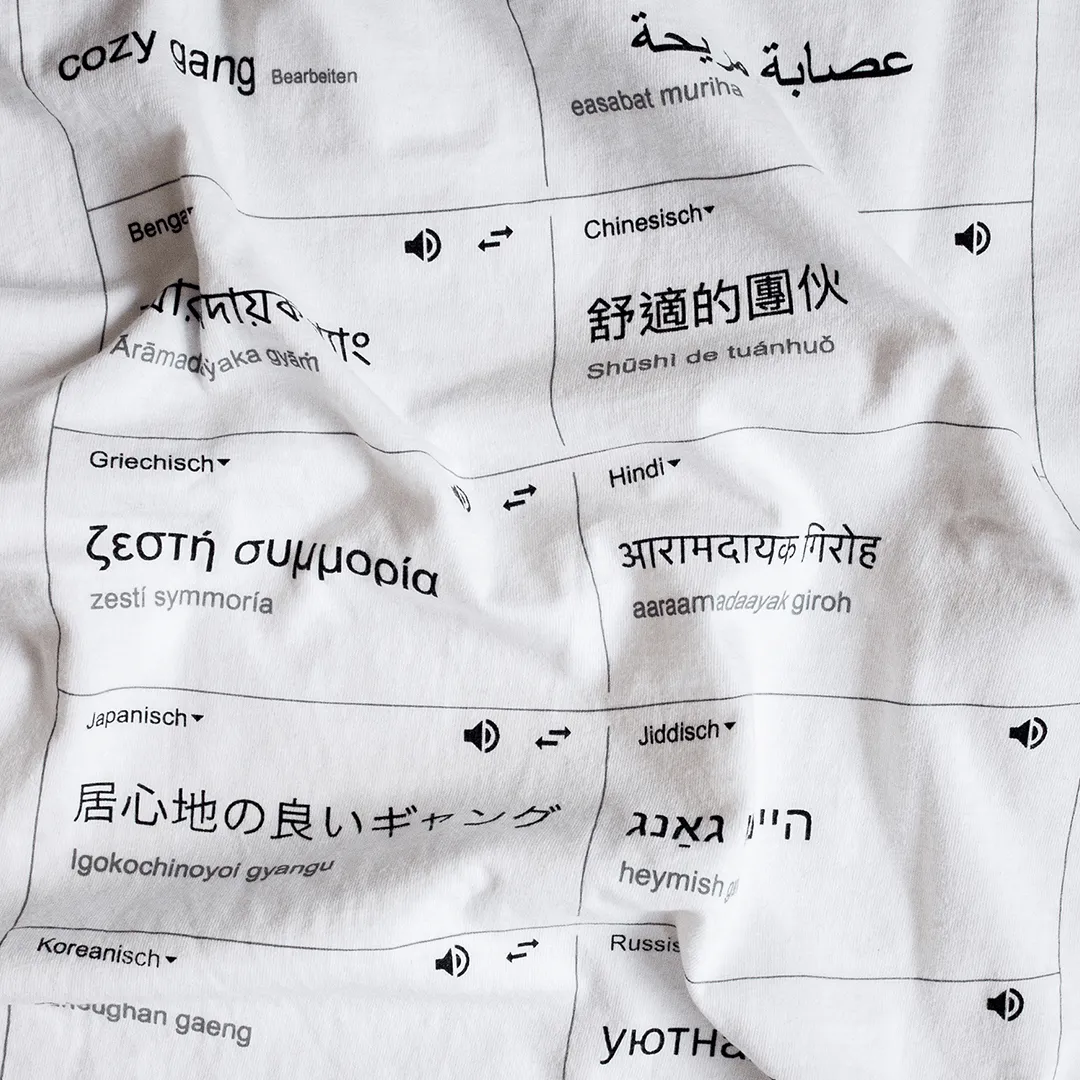 cozy gang Bearbeiten
عصابة مريحة
easabat muriha
Chinesisch
舒適的團伙
Shūshì de tuánhuǒ
Ārāmadāyaka gyāṁ
Griechisch
ζεστή συμμορία
zestí symmoría
Hindi
आरामदायक गिरोह
aaraamadaayak giroh
Japanisch
居心地の良いギャング
Igokochinoyoi gyangu
Jiddisch
גאַנג
heymish
Koreanisch
gaeng